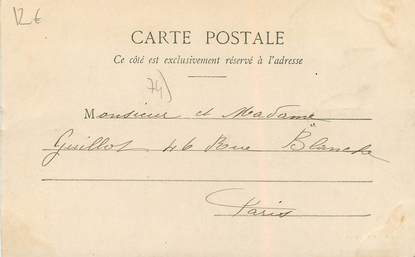 12€
CARTE POSTALE
Ce côté est exclusivement réservé à l'adresse
74)
Monsieur et Madame
Guillot 46 Rue Blanche
Paris